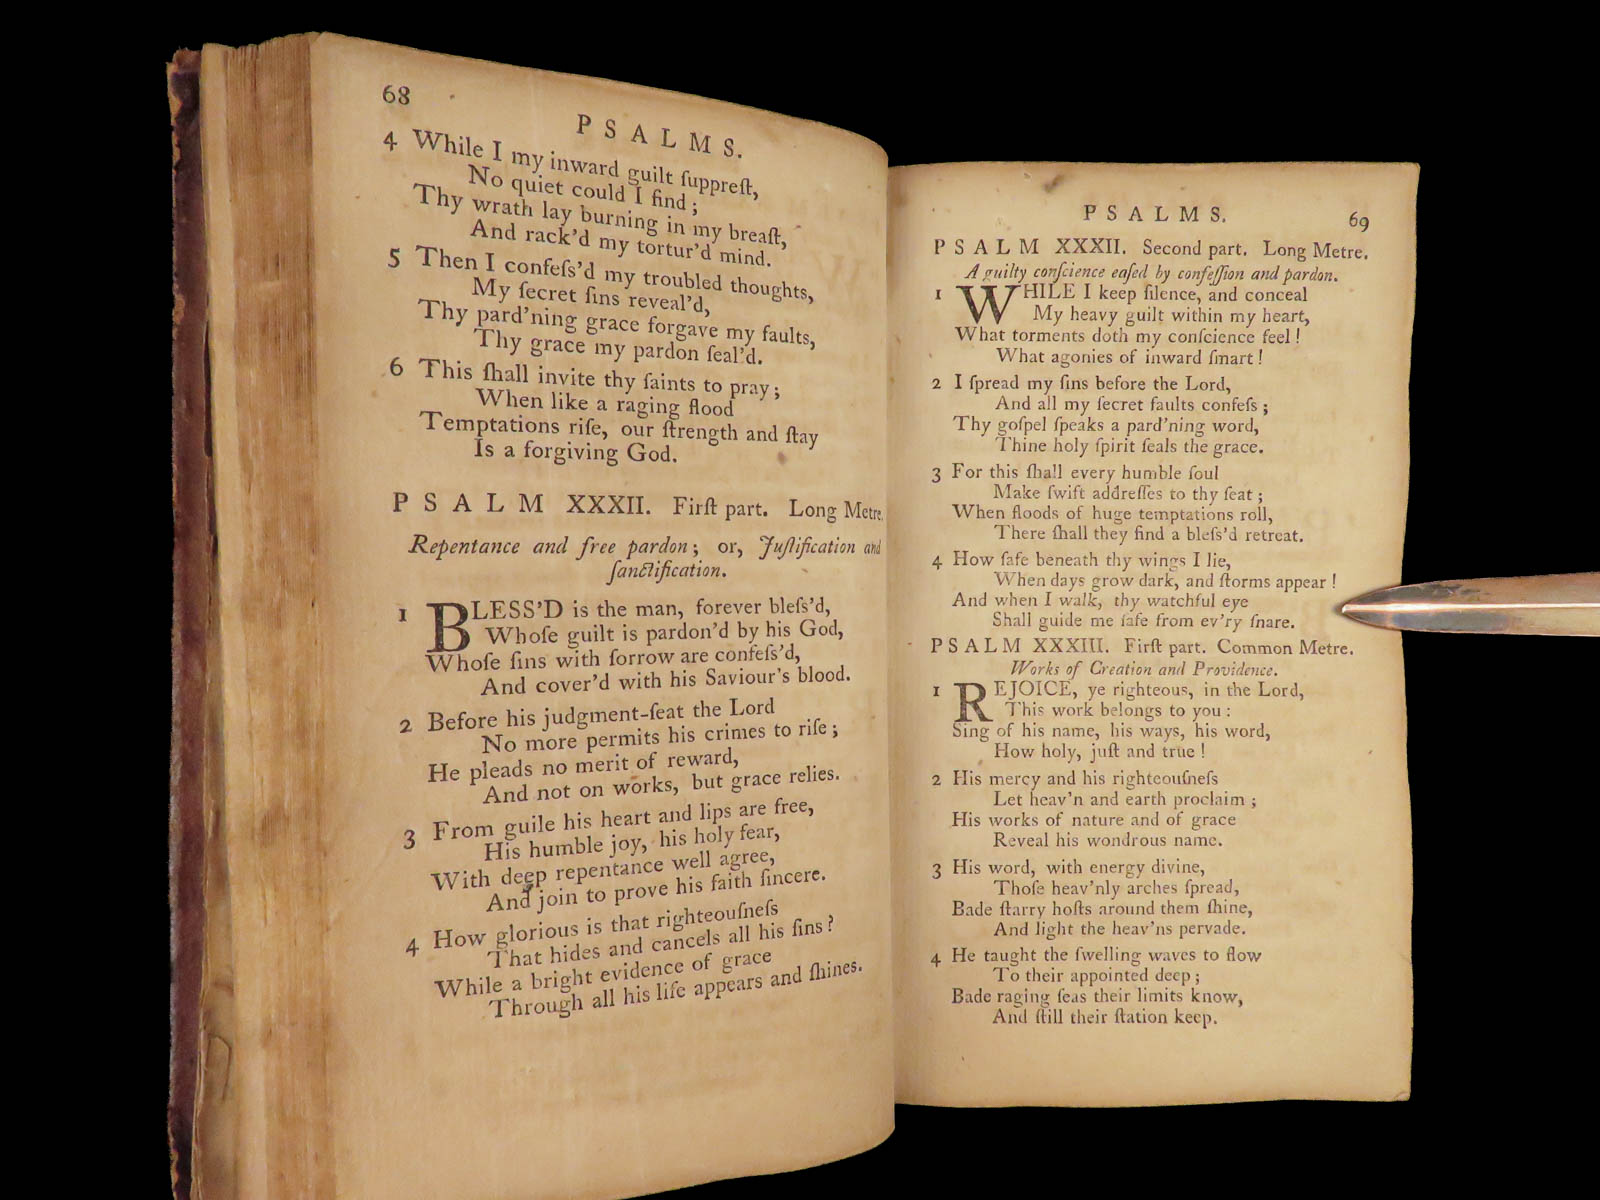 68
PSALMS.
4 While I my inward guilt ſuppreſt,
No quiet could I find;
Thy wrath lay burning in my breaſt,
And rack'd my tortur'd mind.
5 Then I confeſs'd my troubled thoughts,
My ſecret ſins reveal'd,
Thy pard'ning grace forgave my faults,
Thy grace my pardon ſeal'd.
6 This ſhall invite thy ſaints to pray;
When like a raging flood
Temptations riſe, our ſtrength and ſtay
Is a forgiving God.
PSALM XXXII. Firſt part. Long Metre.
Repentance and free pardon; or, Juſtification and
ſanctification.
1 BLESS'D is the man, forever bleſs'd,
Whoſe guilt is pardon'd by his God,
Whoſe ſins with ſorrow are confeſs'd,
And cover'd with his Saviour's blood.
2 Before his judgment-ſeat the Lord
No more permits his crimes to riſe;
He pleads no merit of reward,
And not on works, but grace relies.
3 From guile his heart and lips are free,
His humble joy, his holy fear,
With deep repentance well agree,
And join to prove his faith ſincere.
4 How glorious is that righteouſneſs
That hides and cancels all his ſins?
While a bright evidence of grace
Through all his life appears and ſhines.
PSALMS.
69
PSALM XXXII. Second part. Long Metre.
A guilty conſcience eaſed by confeſſion and pardon.
1 WHILE I keep ſilence, and conceal
My heavy guilt within my heart,
What torments doth my conſcience feel!
What agonies of inward ſmart!
2 I ſpread my ſins before the Lord,
And all my ſecret faults confeſs;
Thy goſpel ſpeaks a pard'ning word,
Thine holy ſpirit ſeals the grace.
3 For this ſhall every humble ſoul
Make ſwift addreſſes to thy ſeat;
When floods of huge temptations roll,
There ſhall they find a bleſs'd retreat.
4 How ſafe beneath thy wings I lie,
When days grow dark, and ſtorms appear!
And when I walk, thy watchful eye
Shall guide me ſafe from ev'ry ſnare.
PSALM XXXIII. Firſt part. Common Metre.
Works of Creation and Providence.
1 REJOICE, ye righteous, in the Lord,
This work belongs to you:
Sing of his name, his ways, his word,
How holy, juſt and true!
2 His mercy and his righteouſneſs
Let heav'n and earth proclaim;
His works of nature and of grace
Reveal his wondrous name.
3 His word, with energy divine,
Thoſe heav'nly arches ſpread,
Bade ſtarry hoſts around them ſhine,
And light the heav'ns pervade.
4 He taught the ſwelling waves to flow
To their appointed deep;
Bade raging ſeas their limits know,
And ſtill their ſtation keep.